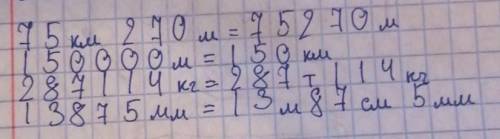 75 км 270 м = 75270 м
150000 м = 150 км
287114 кг = 287 т 114 кг
13875 мм = 13 м 87 см 5 мм